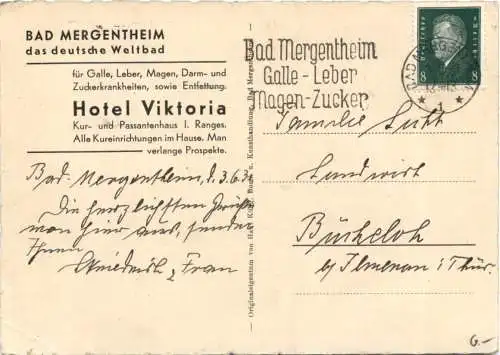 BAD MERGENTHEIM
das deutsche Weltbad
für Galle, Leber, Magen, Darm- und
Zuckerkrankheiten, sowie Entfettung.
Hotel Viktoria
Kur- und Passantenhaus I. Ranges.
Alle Kureinrichtungen im Hause. Man
verlange Prospekte.
Bad-Mergentheim, d. 3.6.
Die herzlichsten
von hier aus, sendet
Ihnen
Friedrich & Frau
Originaleigentum von
Buch- u. Kunsthandlung, Bad Mergentheim
Bad Mergentheim
Galle-Leber
Magen-Zucker
BAD MERGENTHEIM
1
Deutsches Reich
8 8
Familie
Landwirt
Bücheloh
b/ Ilmenau i/ Thür.
6.-